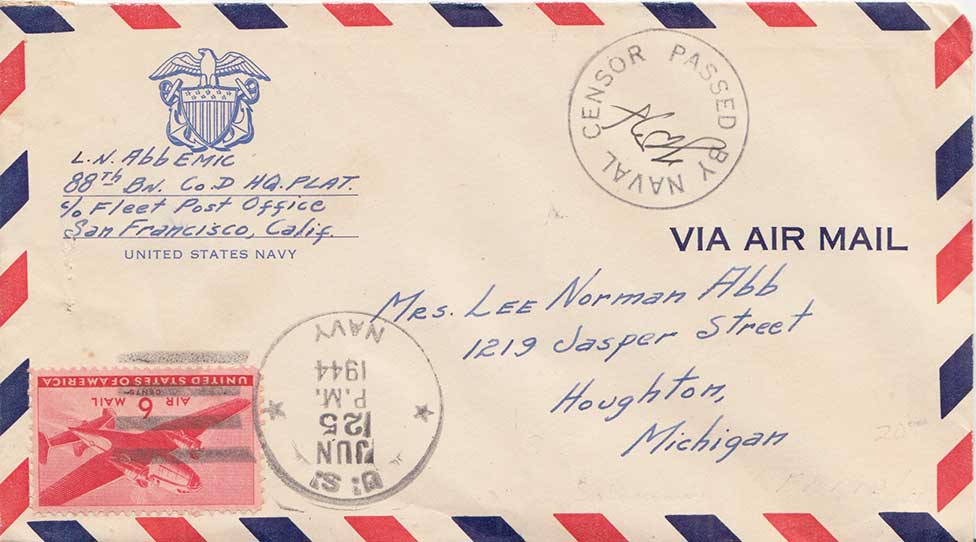 L.N. Abb EMIC
88th Bn. Co D HQ. PLAT.
c/o Fleet Post Office
San Francisco, Calif.
UNITED STATES NAVY
PASSED BY NAVAL CENSOR
VIA AIR MAIL
Mrs. Lee Norman Abb
1219 Jasper Street
Houghton,
Michigan
U.S.
JUN
25
P.M.
1944
NAVY
UNITED STATES OF AMERICA
6 CENTS
AIR MAIL